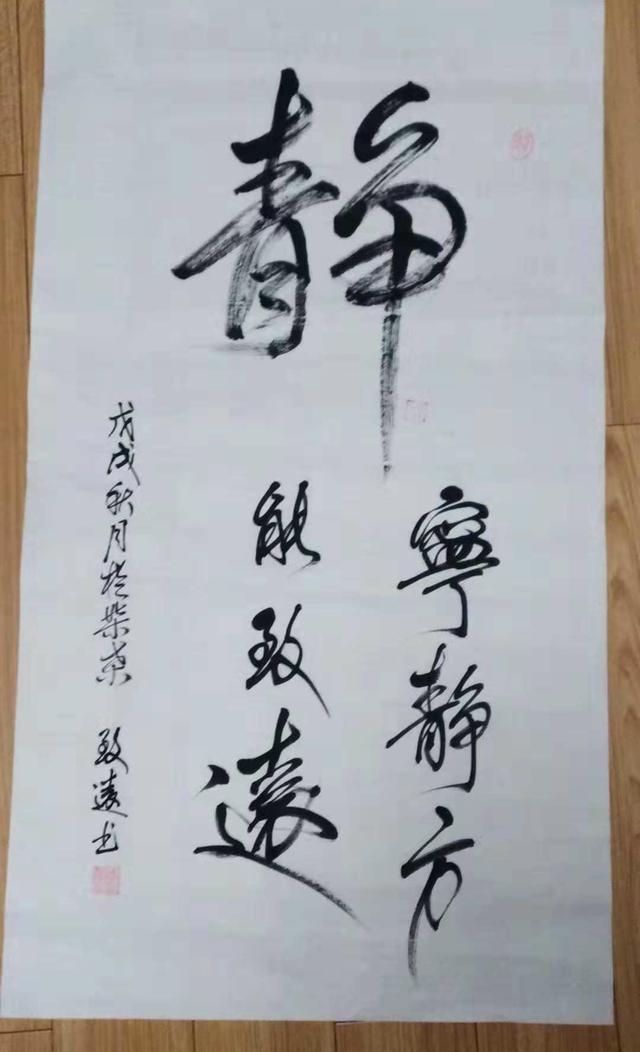 静
寧静方
能致遠
戊戌秋月於柴桑 致遠书